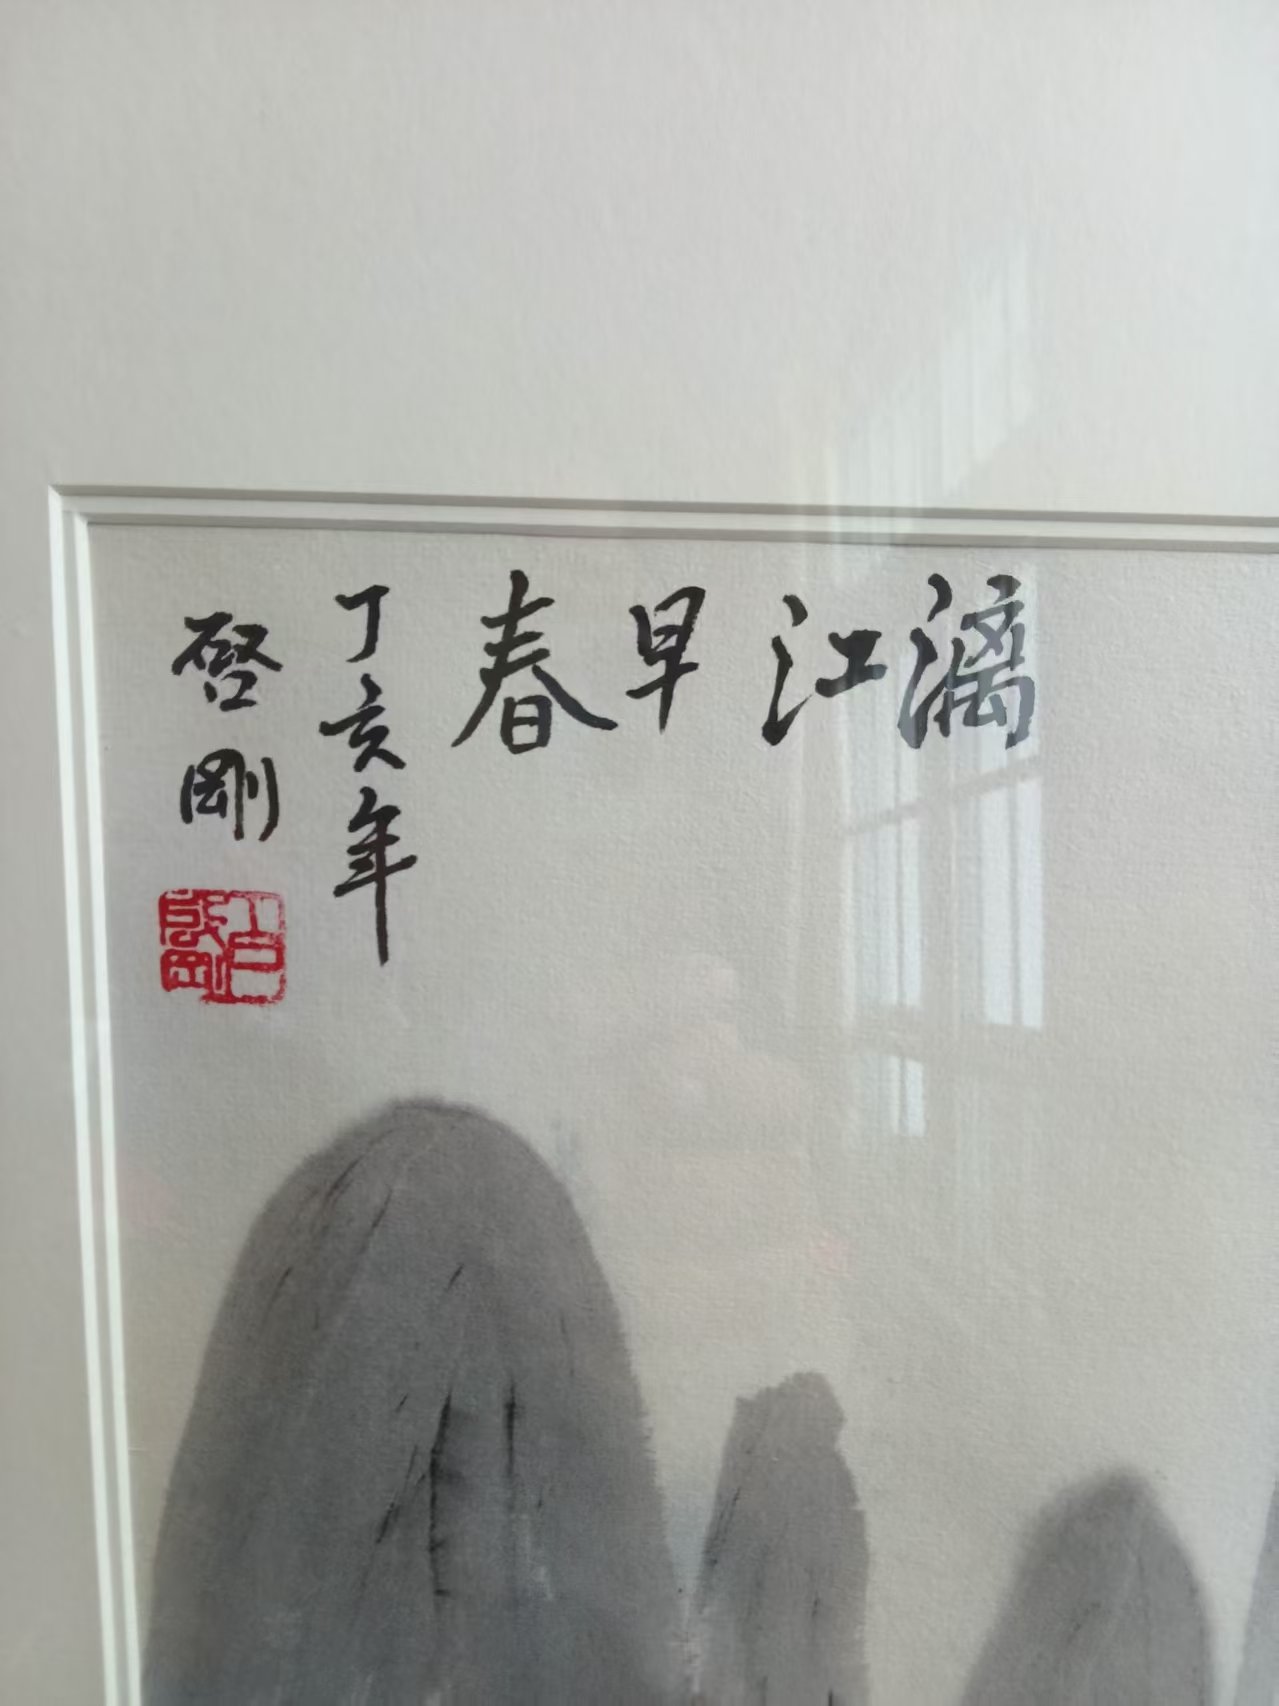 漓江早春
丁亥年
啓剛